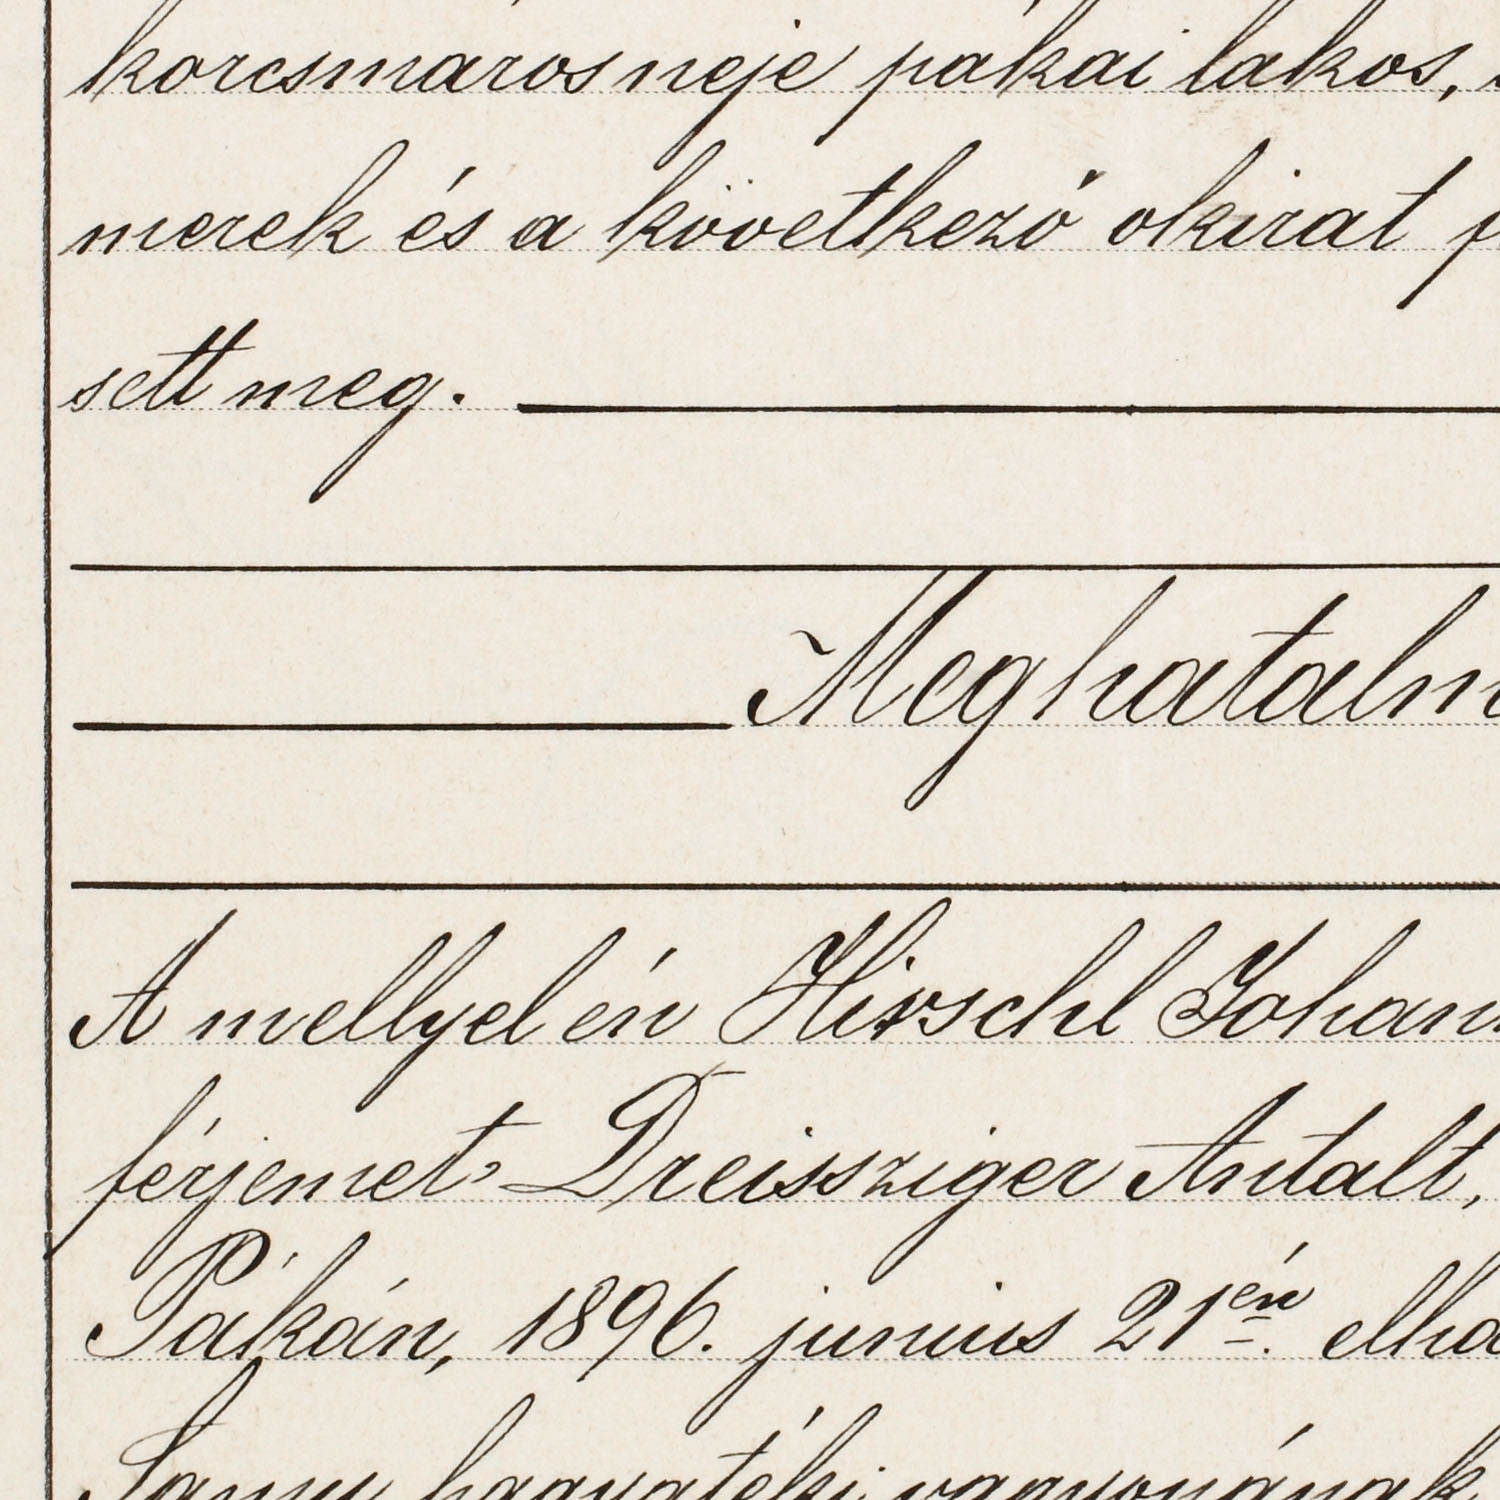 korcsmáros neje pákai lakos,
merek és a következő okirat
sett meg.
Meghatalm
A mellyel én Hirschl Johan
férjemet Dreissziger Antalt,
Pákán, 1896. junius 21én. elha
Samu hagyatéki vagyonának